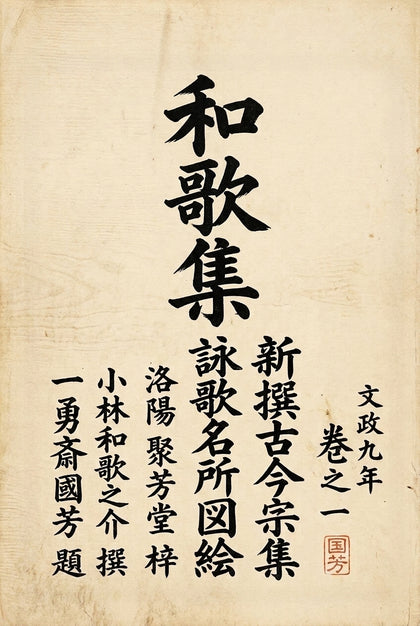 和歌集
文政九年
巻之一
国芳
新撰古今宗集
詠歌名所図絵
洛陽 聚芳堂 梓
小林和歌之介 撰
一勇斎國芳 題